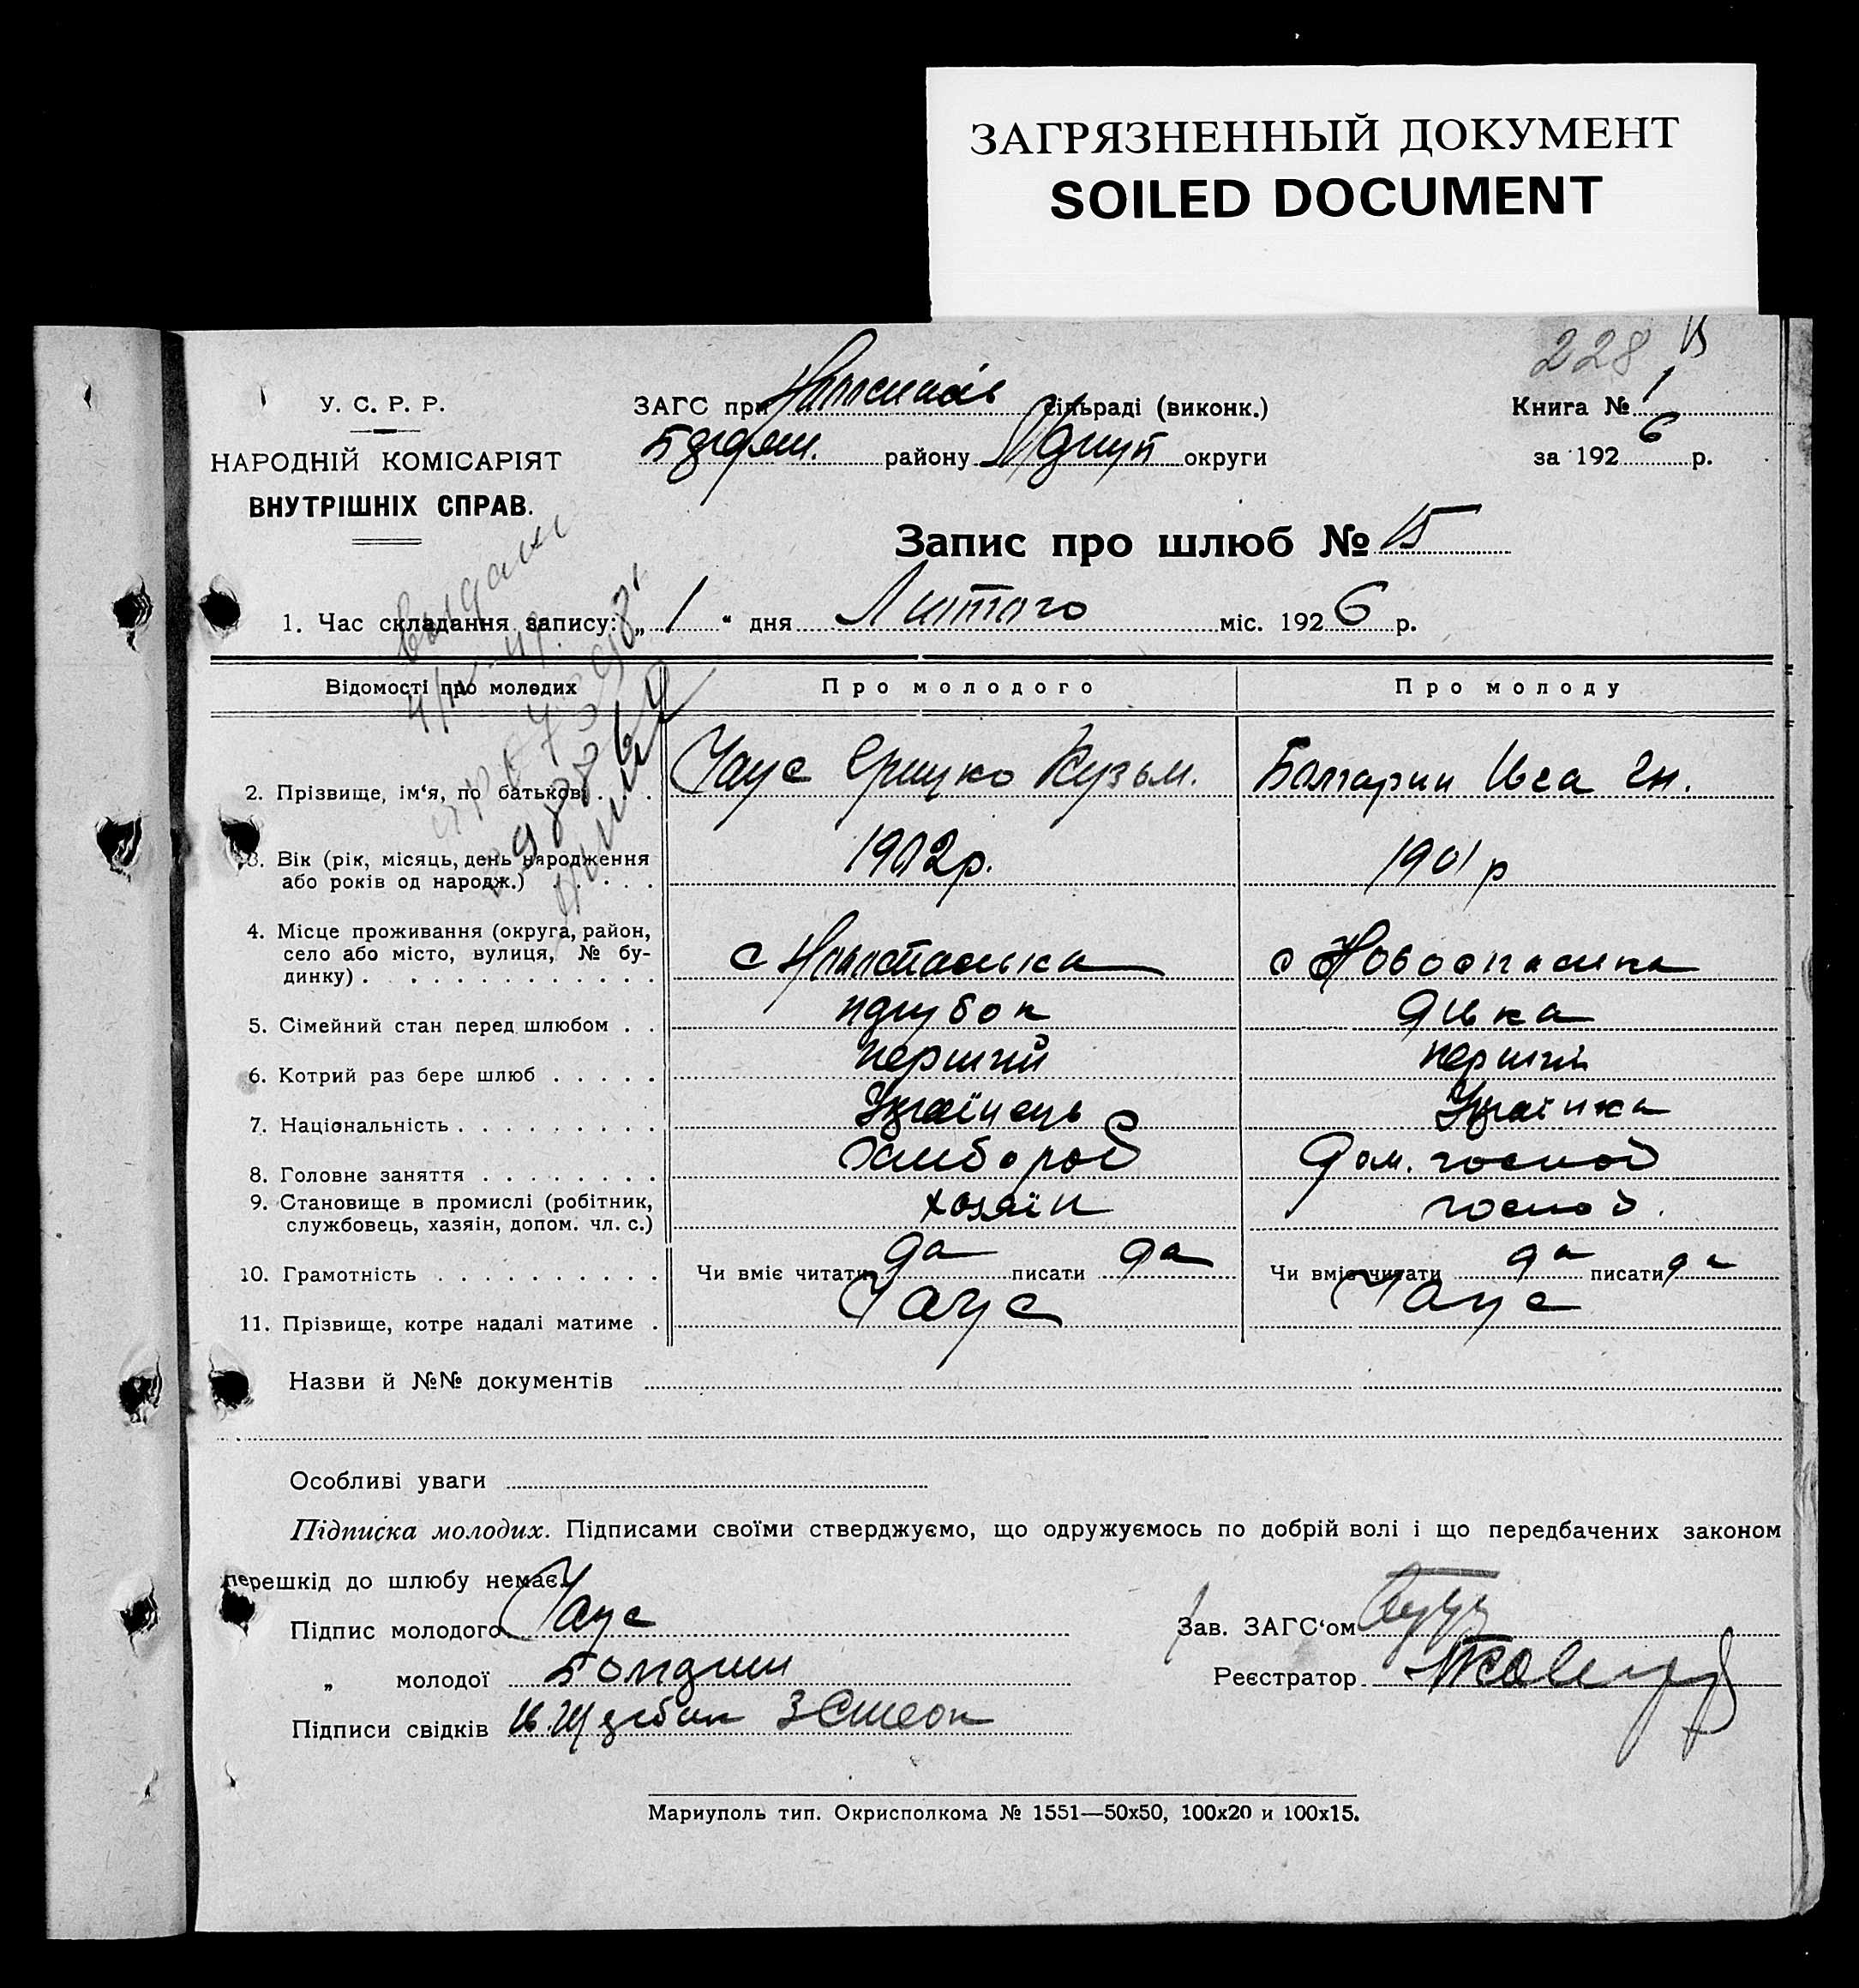 ЗАГРЯЗНЕННЫЙ ДОКУМЕНТ
SOILED DOCUMENT
228
15
У. С. Р. Р.
НАРОДНІЙ КОМІСАРІЯТ
ВНУТРІШНІХ СПРАВ.
ЗАГС при сільраді (виконк.)
району округи
Книга № 1
за 1926 р.
Запис про шлюб № 15
1. Час складання запису: „ 1 “ дня Лютого міс. 1926 р.
Відомості про молодих Про молодого Про молоду
2. Прізвище, ім‘я, по батькові . . Чаус Грицко Кузьм.
3. Вік (рік, місяць, день народження
або років од народж.) . . . . 1902р. 1901р
4. Місце проживання (округа, район,
село або місто, вулиця, № бу-
динку) . . . . . . . . . . . . с с Новоспасивка
5. Сімейний стан перед шлюбом . . парубок дивка
6. Котрий раз бере шлюб . . . . . перший перший
7. Національність . . . . . . . . . Украінець Украінка
8. Головне заняття . . . . . . . . хлибороб Дом. госпой
9. Становище в промислі (робітник,
службовець, хазяін, допом. чл. с.) хозяїн госпой.
10. Грамотність . . . . . . . . . . Чи вміє читати да писати да Чи вміє читати да писати да
11. Прізвище, котре надалі матиме . Чаус Чаус
Назви й №№ документів
Особливі уваги
Підписка молодих. Підписами своїми стверджуємо, що одружуємось по добрій волі і що передбачених законом
перешкід до шлюбу немає.
Підпис молодого Чаус
„ молодої
Підписи свідків
Зав. ЗАГС‘ом
Реєстратор
Мариуполь тип. Окрисполкома № 1551—50х50, 100х20 и 100х15.